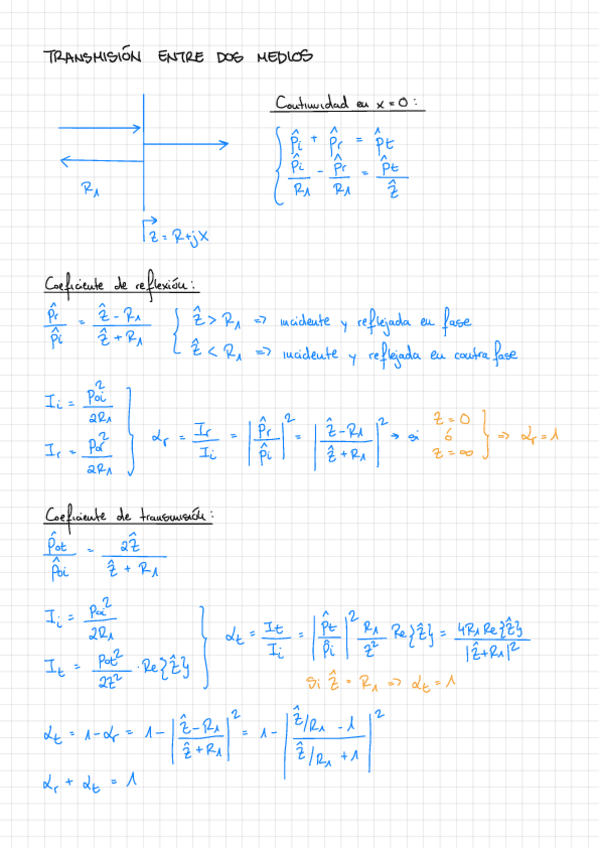 TRANSMISIÓN ENTRE DOS MEDIOS
Continuidad en x=0:
p̂i + p̂r = p̂t
p̂i/R1 - p̂r/R1 = p̂t/ẑ
R1
z = R+jX
Coeficiente de reflexión:
p̂r/p̂i = (ẑ - R1)/(ẑ + R1) { ẑ > R1 => incidente y reflejada en fase
ẑ < R1 => incidente y reflejada en contra fase
Ii = poi²/2R1
Ir = por²/2R1
αr = Ir/Ii = |p̂r/p̂i|² = |(ẑ-R1)/(ẑ+R1)|² → si z=0 ó z=∞ } => αr=1
Coeficiente de transmisión:
p̂ot/p̂oi = 2ẑ/(ẑ + R1)
Ii = poi²/2R1
It = pot²/2z² · Re{ẑ}
αt = It/Ii = |p̂t/p̂i|² R1/z² Re{ẑ} = 4R1Re{ẑ}/|ẑ+R1|²
Si ẑ = R1 => αt = 1
αt = 1-αr = 1-|(ẑ-R1)/(ẑ+R1)|² = 1-|(ẑ/R1 -1)/(ẑ/R1 +1)|²
αr + αt = 1